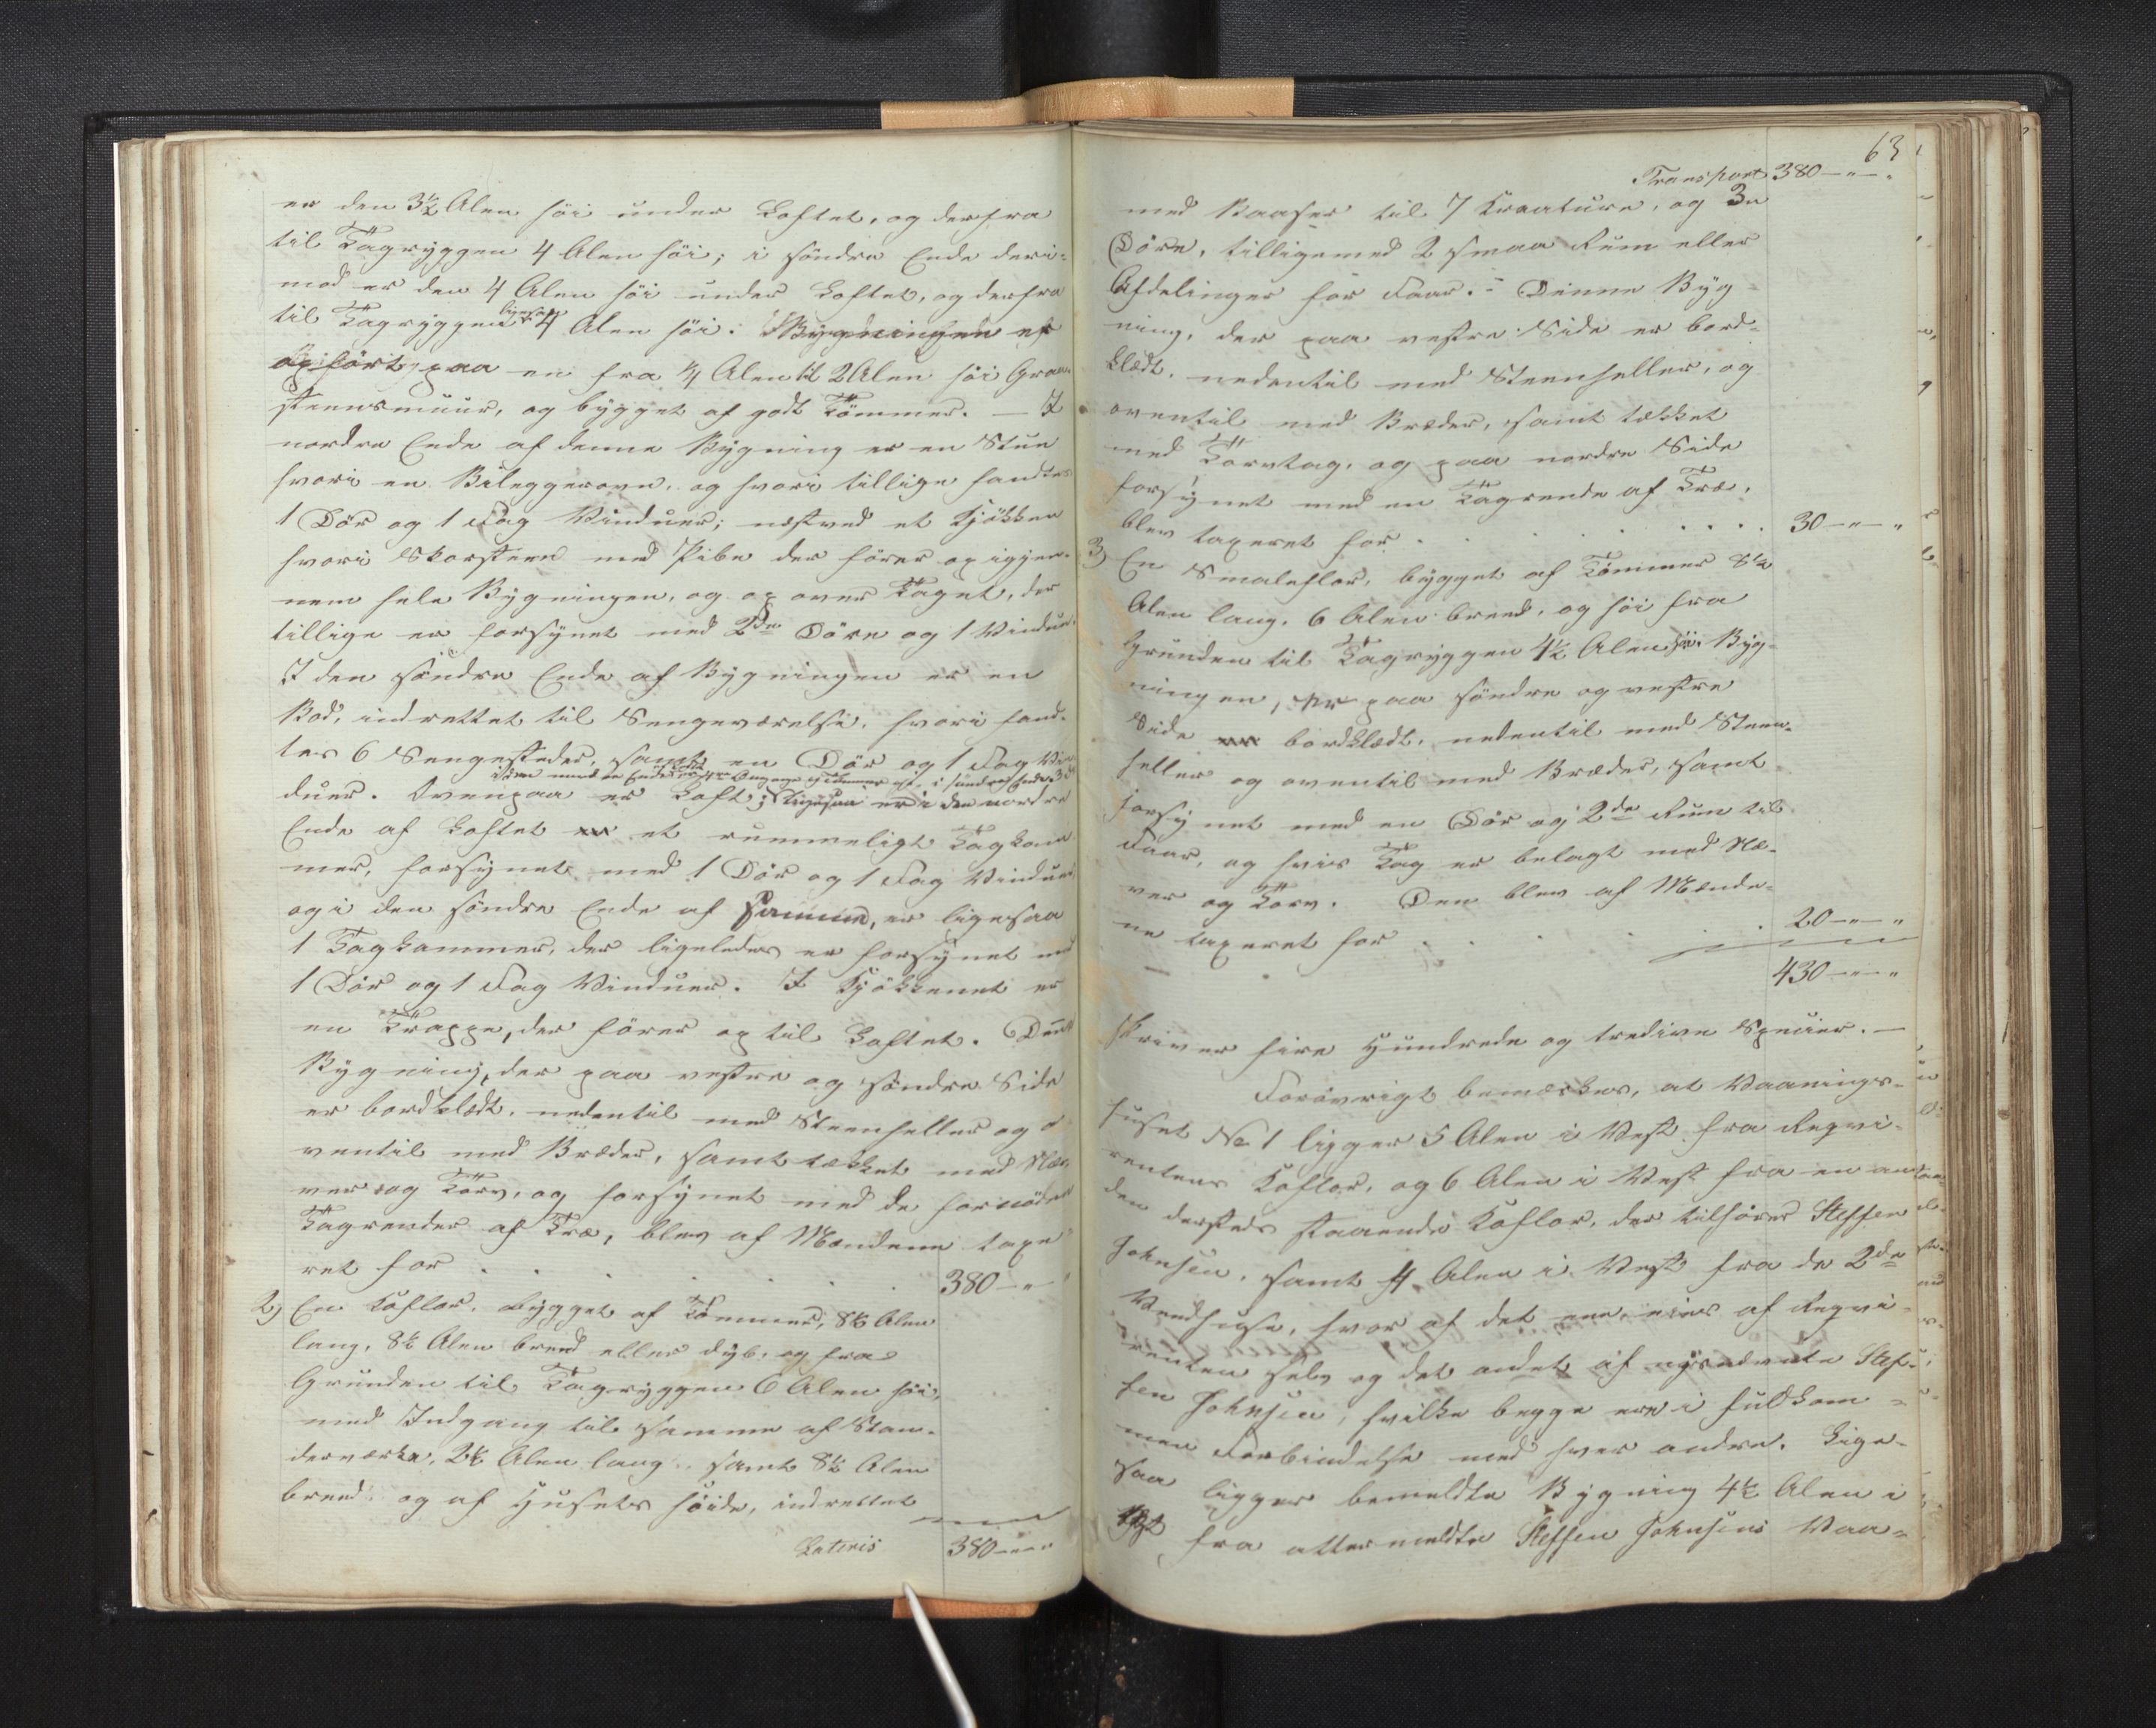 er den 3½ Alen höi under Loftet, og derfra
til Tagryggen 4 Alen höi; i söndre Ende deri-
mod er den 4 Alen höi under Loftet, og derfra
til Tagryggen ligesaa 4 Alen höi. Bygningen er
opfört paa en fra ¼ Alen til 2 Alen höi Graa-
steensmuur, og bygget af godt Tömmer. — I
nordre Ende af denne Bygning er en Stue
hvori en Bileggerovn, og hvori tillige fandtes
1 Dör og 1 Fag Vinduer; næstved et Kjökken
hvori Skorsteen med Pibe der förer op igjen-
nem hele Bygningen, og op over Taget, der
tillige er forsynet med 2de Döre og 1 Vindue.
I den söndre Ende af Bygningen er en
Bod, indrettet til Sengeværelse, hvori fand-
tes 6 Sengesteder, samt en Dör og 1 Fag Vin-
duer. Ovenpaa er Loft; ligesaa er i den nordre
Ende af Loftet et rummeligt Tagkam-
mer, forsynet med 1 Dör og 1 Fag Vinduer,
og i den söndre Ende af samme, er ligesaa
1 Tagkammer, der ligeledes er forsynet med
1 Dör og 1 Fag Vinduer. I Kjökkenet er
en Trappe, der förer op til Loftet. Denne
Bygning, der paa vestre og söndre Side
er bordklædt, nedentil med Steenheller og o-
ventil med Bræder, samt tækket med Næ-
ver og Törv, og forsynet med de fornödne
Tagrender af Træ, blev af Mændene taxe-
ret for . . . . . 380 — "
2) En Koflor, bygget af Tömmer, 8½ Alen
lang, 8½ Alen breed eller dyb, og fra
Grunden til Tagryggen 6 Alen höi,
med Indgang til samme af Stan-
derværke, 2½ Alen lang, samt 8½ Alen
breed og af Husets höide, indrettet
Lateris 380 — "
63
Transport 380 — " — "
med Baaser til 7 Kreature, og 3de
Döre, tilligemed 2 smaa Rum eller
Afdelinger for Faar. — Denne Byg-
ning, der paa vestre Side er bord-
klædt, nedentil med Steenheller, og
oventil med Bræder, samt tækket
med Torvtag, og paa nordre Side
forsynet med en Tagrende af Træ,
blev taxeret for . . . . 30 — " — "
3) En Smaleflor, bygget af Tömmer 8½
Alen lang, 6 Alen breed, og höi fra
Grunden til Tagryggen 4½ Alen höi. Byg-
ningen, der paa söndre og vestre
Side er bordklædt, nedentil med Steen-
heller og oventil med Bræder, samt
forsynet med en Dör og 2de Rum til
Faar, og hvis Tag er belagt med Næ-
ver og Törv. Den blev af Mænde-
ne taxeret for . . . . 20 — " — "
430 — " — "
skriver fire Hundrede og tredive Specier. —
Forövrigt bemærkes, at Vaanings-
huset No 1 ligger 5 Alen i Vest fra Reqvi-
rentens Koflor, og 6 Alen i Vest fra en an-
den dersteds staaende Koflor, der tilhörer Steffen
Johnsen, samt 4 Alen i Vest fra de 2de
Vedhuse, hvor af det ene, eies af Reqvi-
renten selv og det andet af nysnævnte Stef-
fen Johnsen, hvilke begge ere i fuldkom-
men Forbindelse med hver andre. Lige-
saa ligger bemeldte Bygning 4½ Alen i
fra attermeldte Steffen Johnsens Vaa-